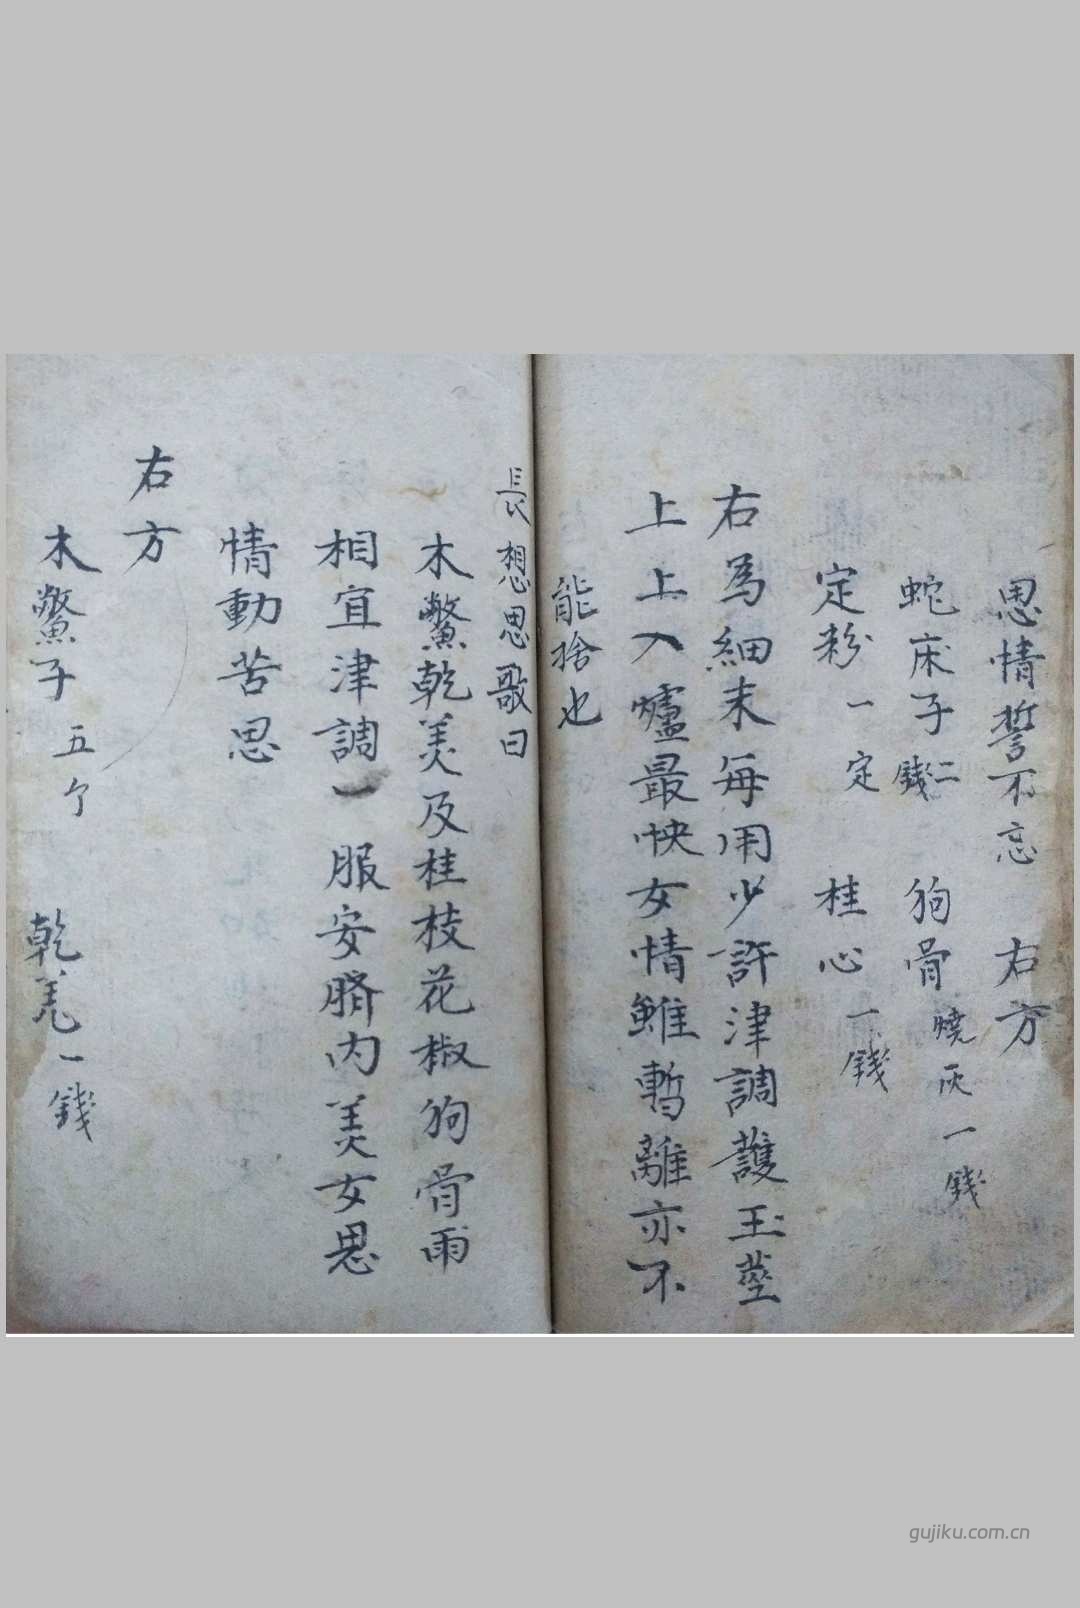 恩情誓不忘　右方
蛇床子二錢　狗骨燒灰一錢
定粉一定　桂心一錢
右為細末每用少許津調護玉莖
上上入爐最快女情雖暫離亦不
能捨也
長想思歌曰
木鱉乾羙及桂枝花椒狗骨兩
相宜津調一服安臍內美女思
情動苦思
右方
木鱉子五个　乾羌一錢
gujiku.com.cn